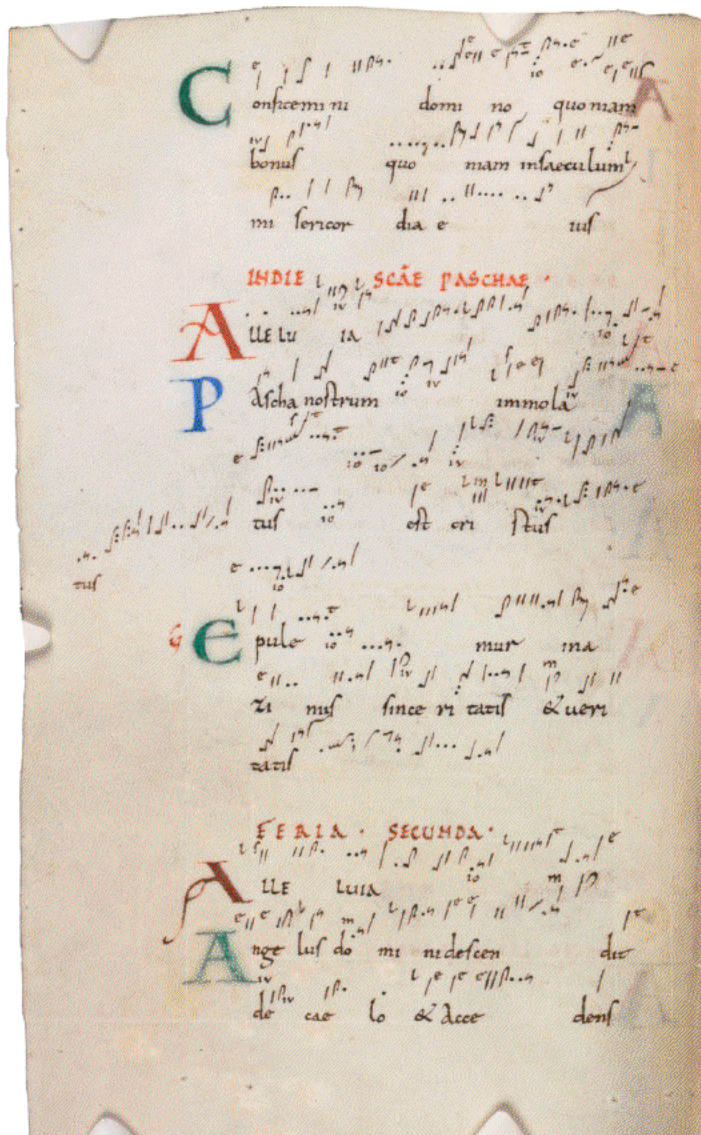 Confitemini domi no quoniam
bonuſ quo niam inſaeculum
mi ſericor dia e iuſ
IN DIE SCÃE PASCHAE ·
ALLELU IA
PAſcha noſtrum immola
tuſ eſt cri ſtuſ
tuſ
G Epule mur in a
zi miſ ſince ri tatiſ & ueri
tatiſ
FERIA · SECUNDA ·
ALLE LUIA
Ange luſ do mi ni deſcen dit
de cae lo & Acce denſ